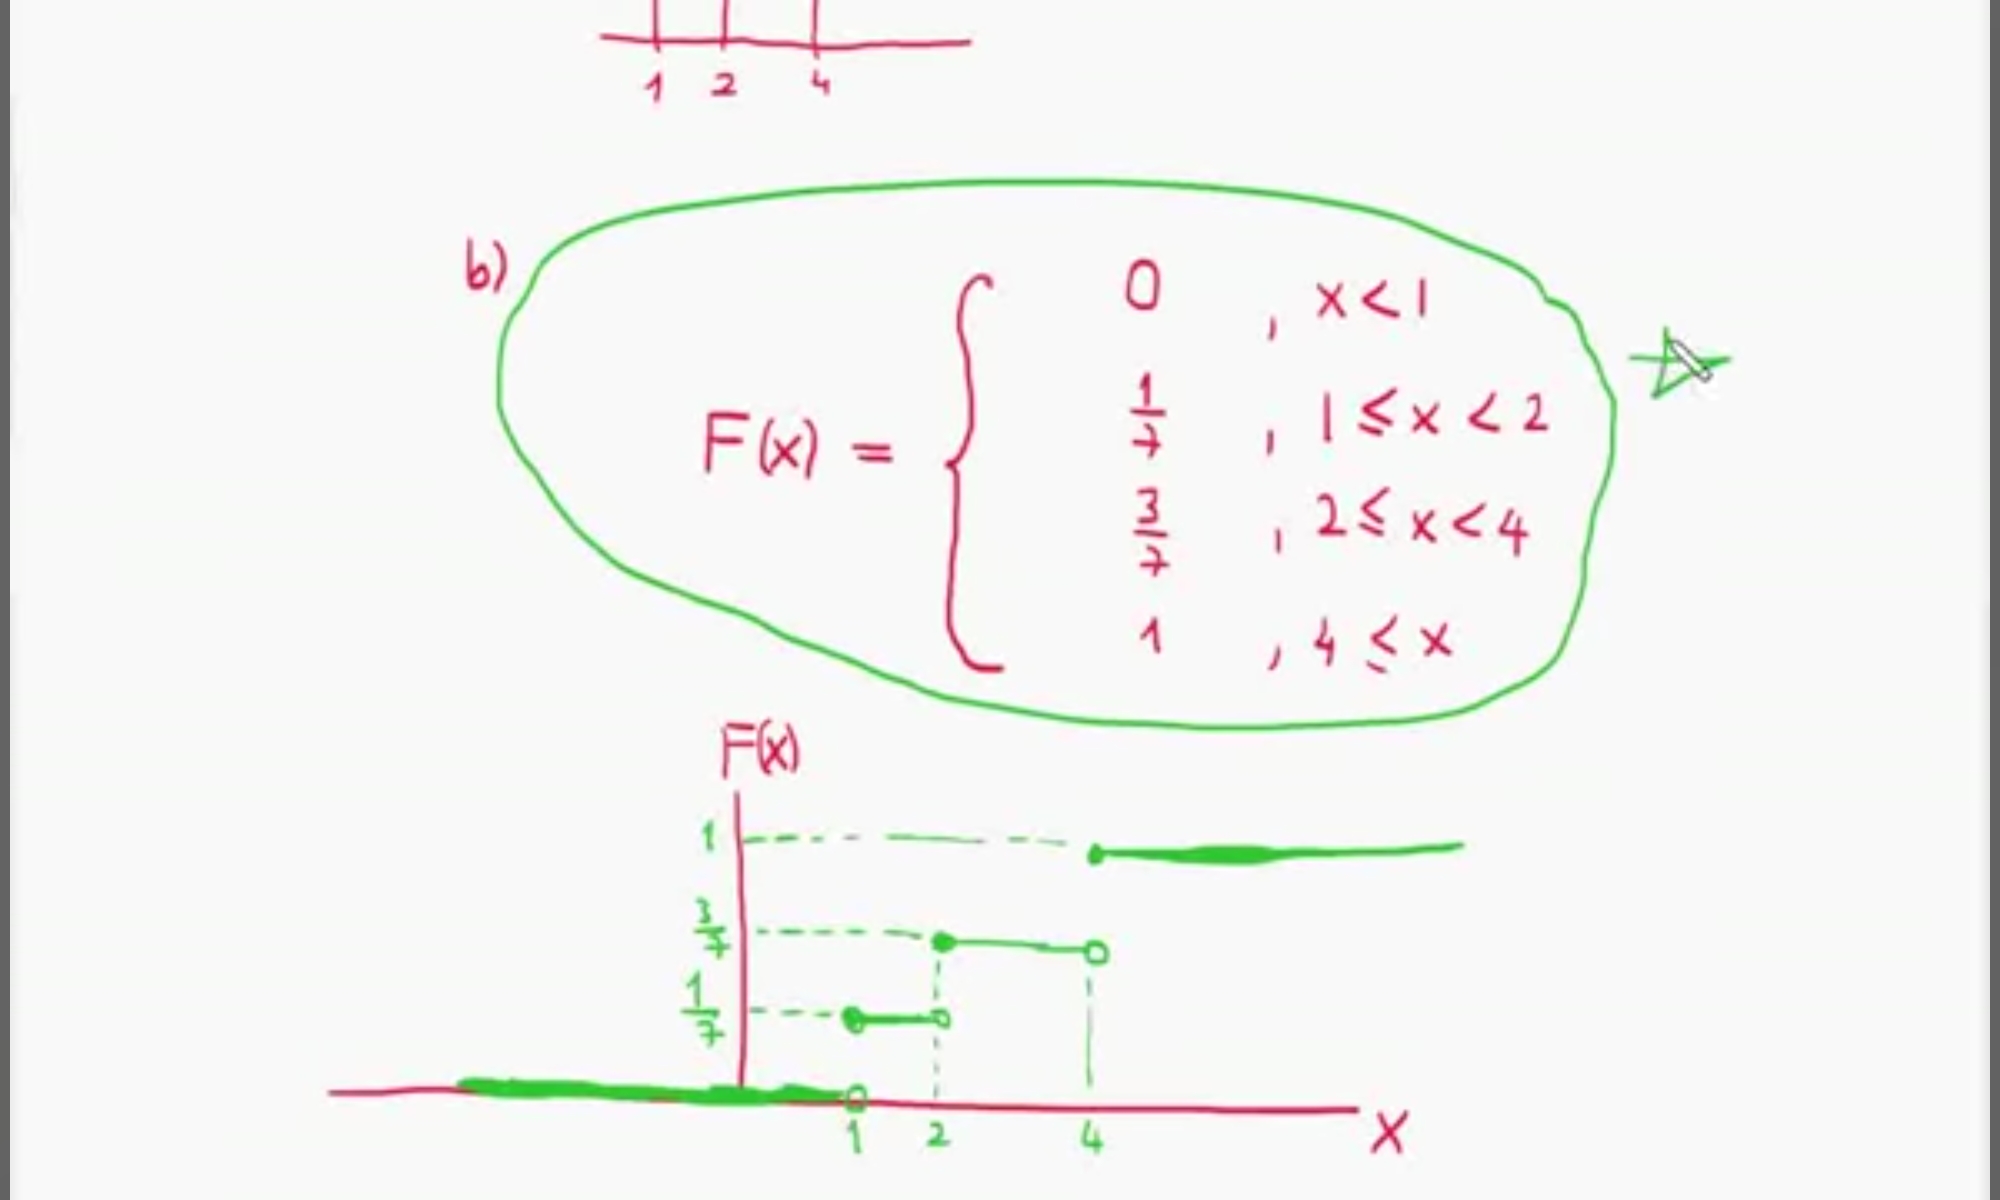 1 2 4
b)
F(x) = { 0 , x < 1
1/7 , 1 ≤ x < 2
3/7 , 2 ≤ x < 4
1 , 4 ≤ x
F(x)
1
3/7
1/7
1 2 4
X